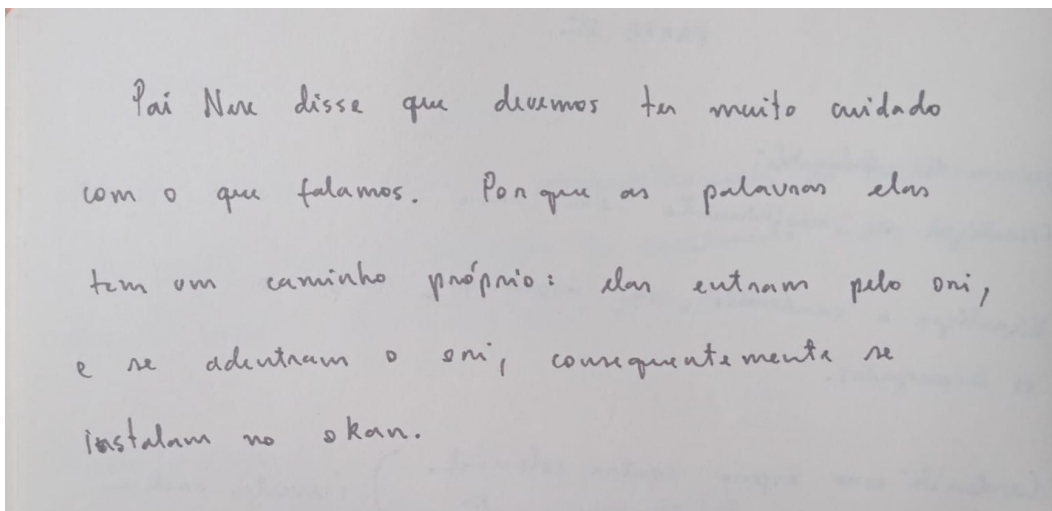 Pai Nere disse que devemos ter muito cuidado
com o que falamos. Porque as palavras elas
tem um caminho próprio: elas entram pelo ori,
e se adentram o ori, consequentemente se
instalam no okan.